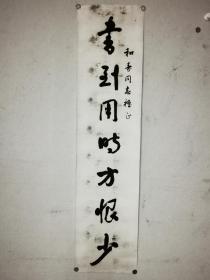 书到用时方恨少
和喜同志雅正